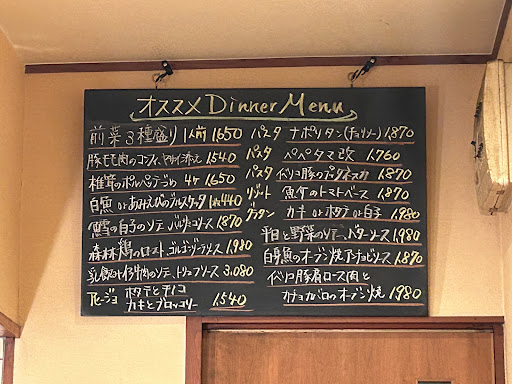 オススメ Dinner Menu
前菜3種盛り 1人前 1650
豚モモ肉のコンフィ、ヤサイ添え 1540
椎茸のポルペッティーニ 4ヶ 1650
白魚 or あみえびのブルスケッタ 440
鱈の白子のソテー バルサミコソース 1,870
森林鶏のロースト、ゴルゴンゾーラソース 1,980
乳飲み仔牛肉のソテー、トリュフソース 3,080
アヒージョ ホタテとキノコ
カキとブロッコリー 1540
パスタ ナポリタン(チョリソー) 1,870
パスタ ペペタマ改 1,760
パスタ イベリコ豚のプッタネスカ 1,870
リゾット 魚介のトマトベース 1,870
グラタン カキ or ホタテ or 白子 1,980
平目と野菜のソテー、バターソース 1,980
白身魚のオーブン焼アンチョビソース 1,870
イベリコ豚肩ロース肉と
カチョカバロのオーブン焼 1,980